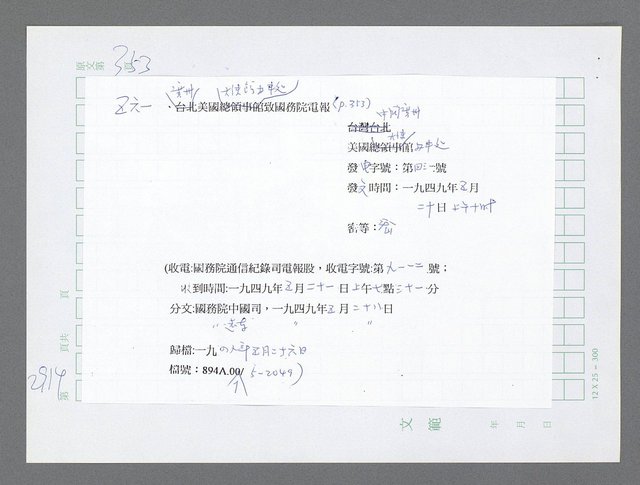 原文第353頁
廣州 大使館办事处
五六一、台北美國總領事館致國務院電報(p.353)
中國廣州
台灣台北
大使
美國總領事館办事处
發電字號：第四三一號
發文時間：一九四九年五月
二十日上午十時
密等：密
(收電:國務院通信紀錄司電報股，收電字號:第九一一二號；
收到時間:一九四九年五月二十一日上午七點三十一分
分文:國務院中國司，一九四九年五月二十八日
〃 〃 〃
歸檔:一九四八年五月二十六日
檔號：894A.00/5-2049)
2914
第 頁共 頁
12 X 25 = 300
文 範
年 月 日